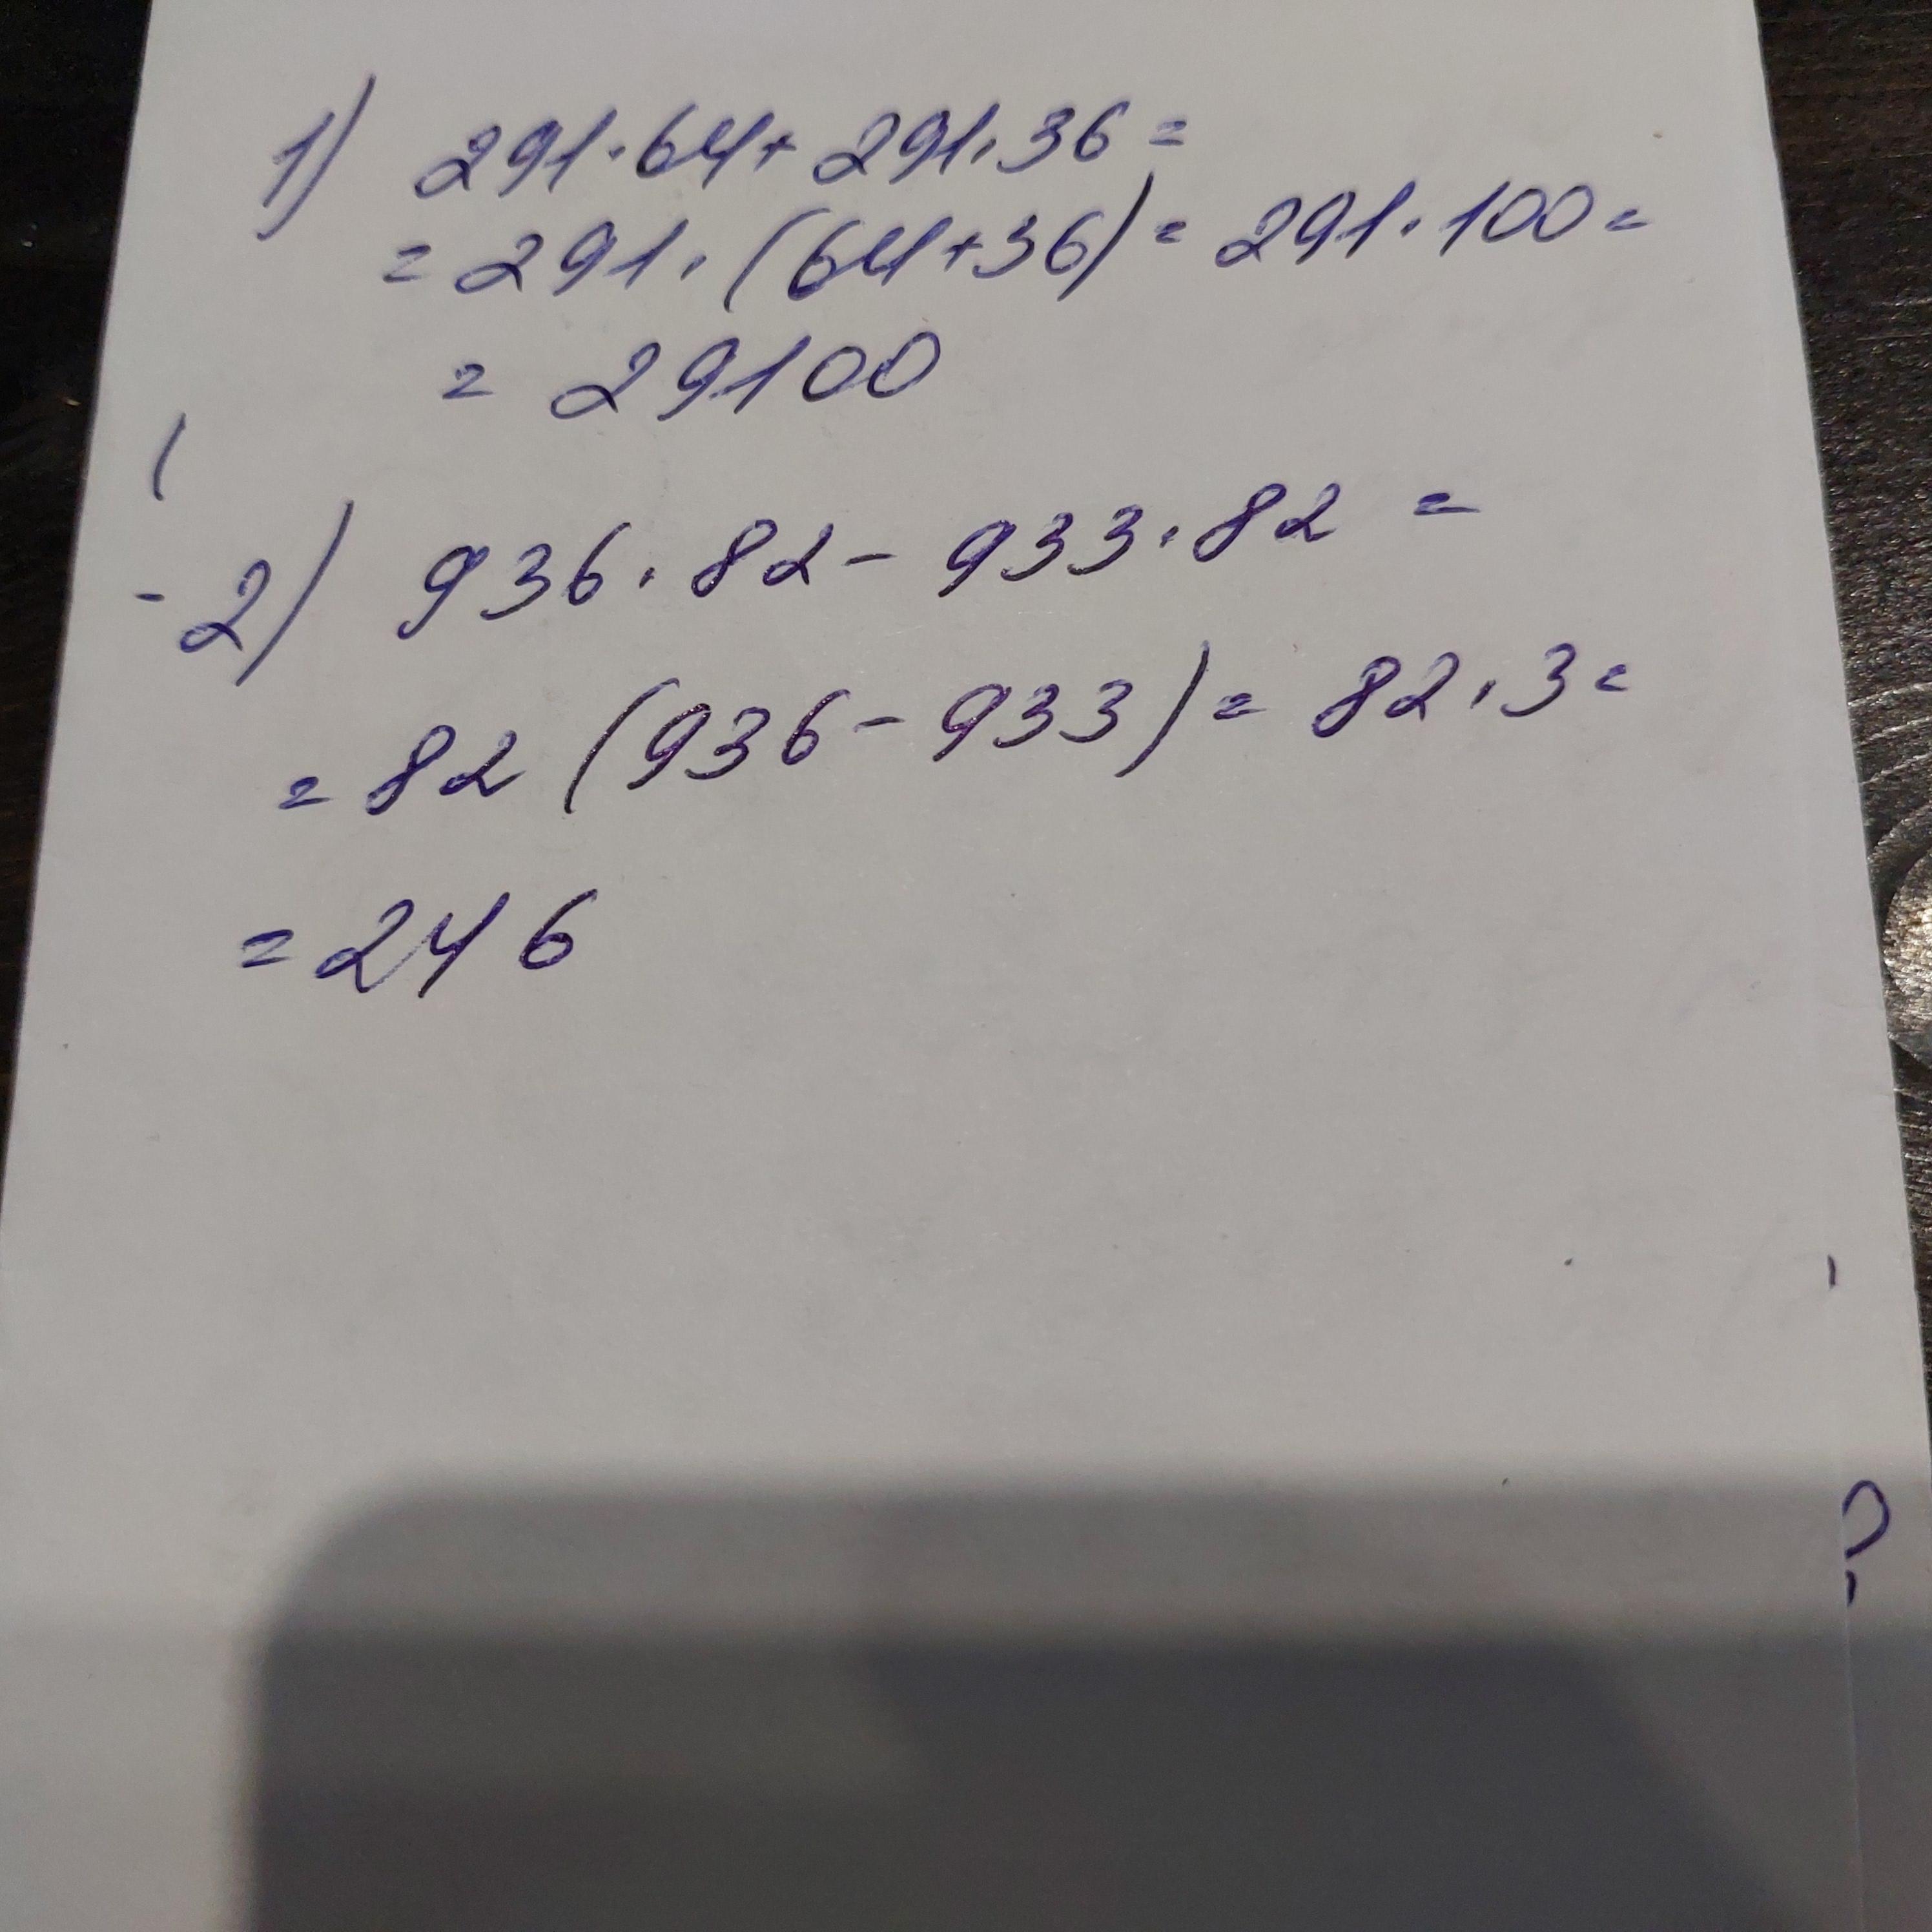 1) 291·64+291·36=
=291·(64+36)=291·100=
=29100
2) 936·82-933·82=
=82(936-933)=82·3=
=246
?